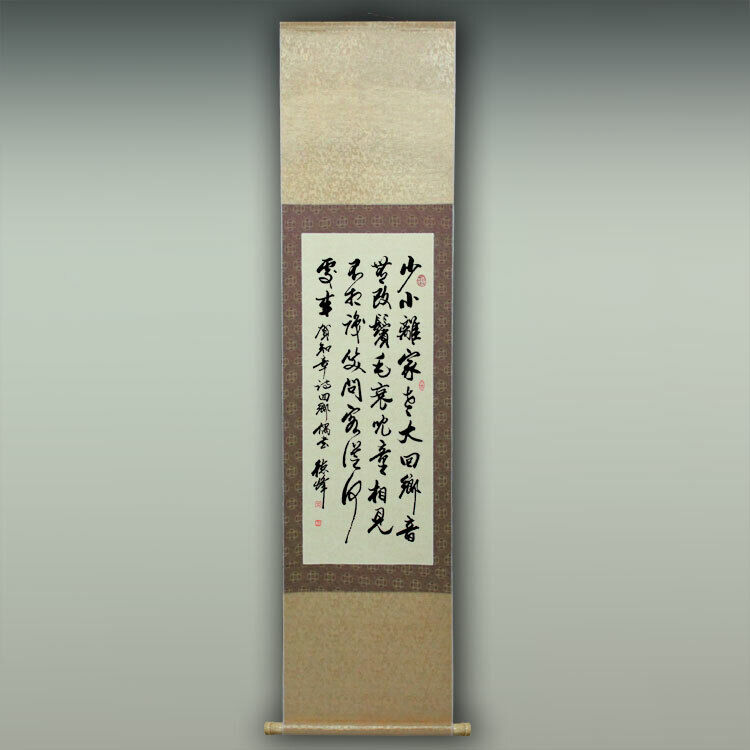 少小離家老大回鄉音
無改鬢毛衰兒童相見
不相識笑問客從何
處來 賀知章詩回鄉偶書